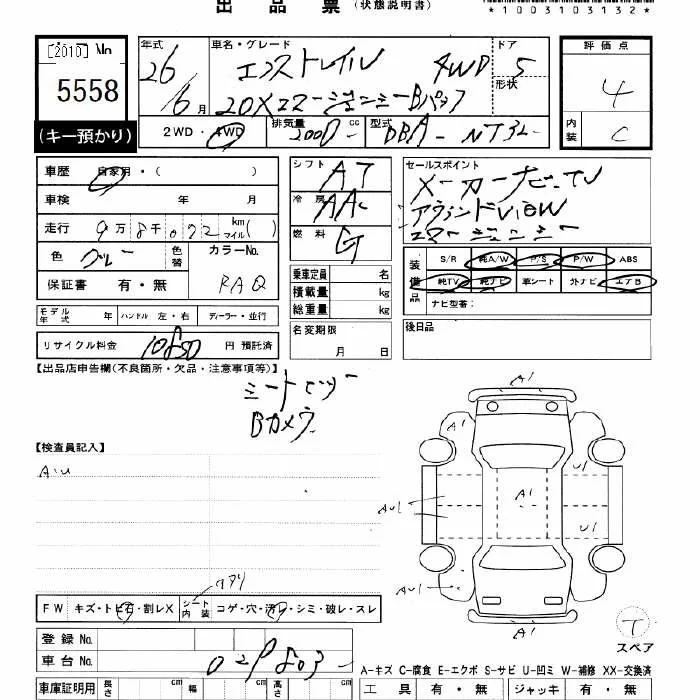 出品票 (状態説明書)
*1003103132*
[2010] No
5558
(キー預かり)
年式
26
6月
車名・グレード
エクストレイル 4WD
20Xエマージェンシーブレーキパッケ
ドア 5
形状
2WD・4WD
排気量 2000 cc
型式 DBA-NT32-
評価点
4
内装 C
車歴 自家用・( )
車検 年 月
走行 9万8千072 km マイル( )
色 グレー 色替
カラーNo. RAQ
保証書 有・無
モデル年式 年 ハンドル 左・右 ディーラー・並行
リサイクル料金 10850 円預託済
シフト AT
冷房 AAC
燃料 G
乗車定員 名
積載量 kg
総重量 kg
名変期限
月 日
セールスポイント
メーカーナビ・TV
アラウンドVIEW
エマージェンシー
装備品
S/R 純A/W P/S P/W ABS
純TV 純ナビ 革シート 外ナビ エアB
ナビ型番:
後日品
【出品店申告欄(不良箇所・欠品・注意事項等)】
シートヒーター
Bカメラ
【検査員記入】
A・U
FW キズ・トビ石・割レX シート内装 コゲ・穴・汚レ・シミ・破レ・スレ
登録No.
車台No. 029803
車庫証明用 長さ cm 幅 cm 高さ cm
A1
A1
A1
U1
AU1
AU1
U1
A1
T
スペア
A-キズ C-腐食 E-エクボ S-サビ U-凹ミ W-補修 XX-交換済
工具 有・無 ジャッキ 有・無